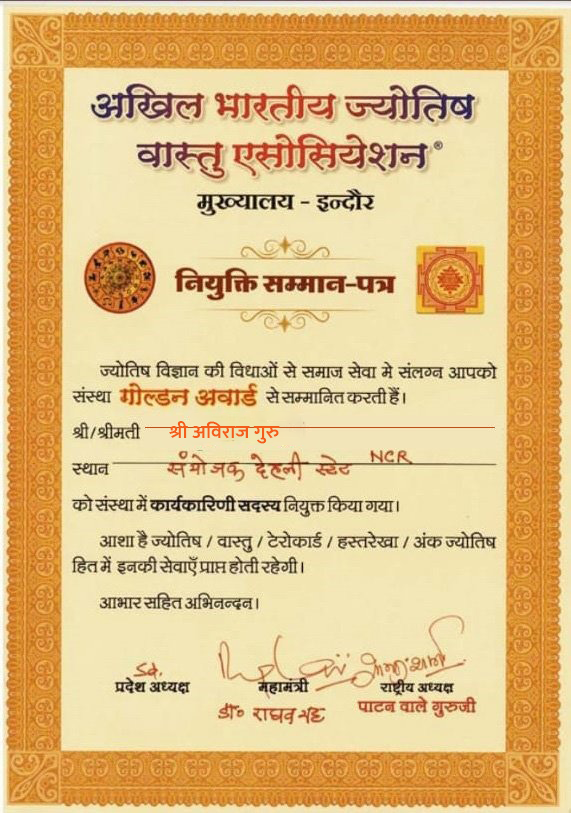 अखिल भारतीय ज्योतिष
वास्तु एसोसियेशन®
मुख्यालय - इन्दौर
नियुक्ति सम्मान-पत्र
ज्योतिष विज्ञान की विधाओं से समाज सेवा मे संलग्न आपको
संस्था गोल्डन अवार्ड से सम्मानित करती हैं।
श्री/श्रीमती श्री अविराज गुरु
स्थान संयोजक देहली स्टेट NCR
को संस्था में कार्यकारिणी सदस्य नियुक्त किया गया।
आशा है ज्योतिष / वास्तु / टेरोकार्ड / हस्तरेखा / अंक ज्योतिष
हित में इनकी सेवाएँ प्राप्त होती रहेगी।
आभार सहित अभिनन्दन।
Sd.
प्रदेश अध्यक्ष महामंत्री राष्ट्रीय अध्यक्ष
डॉ० राघव पाटन वाले गुरुजी